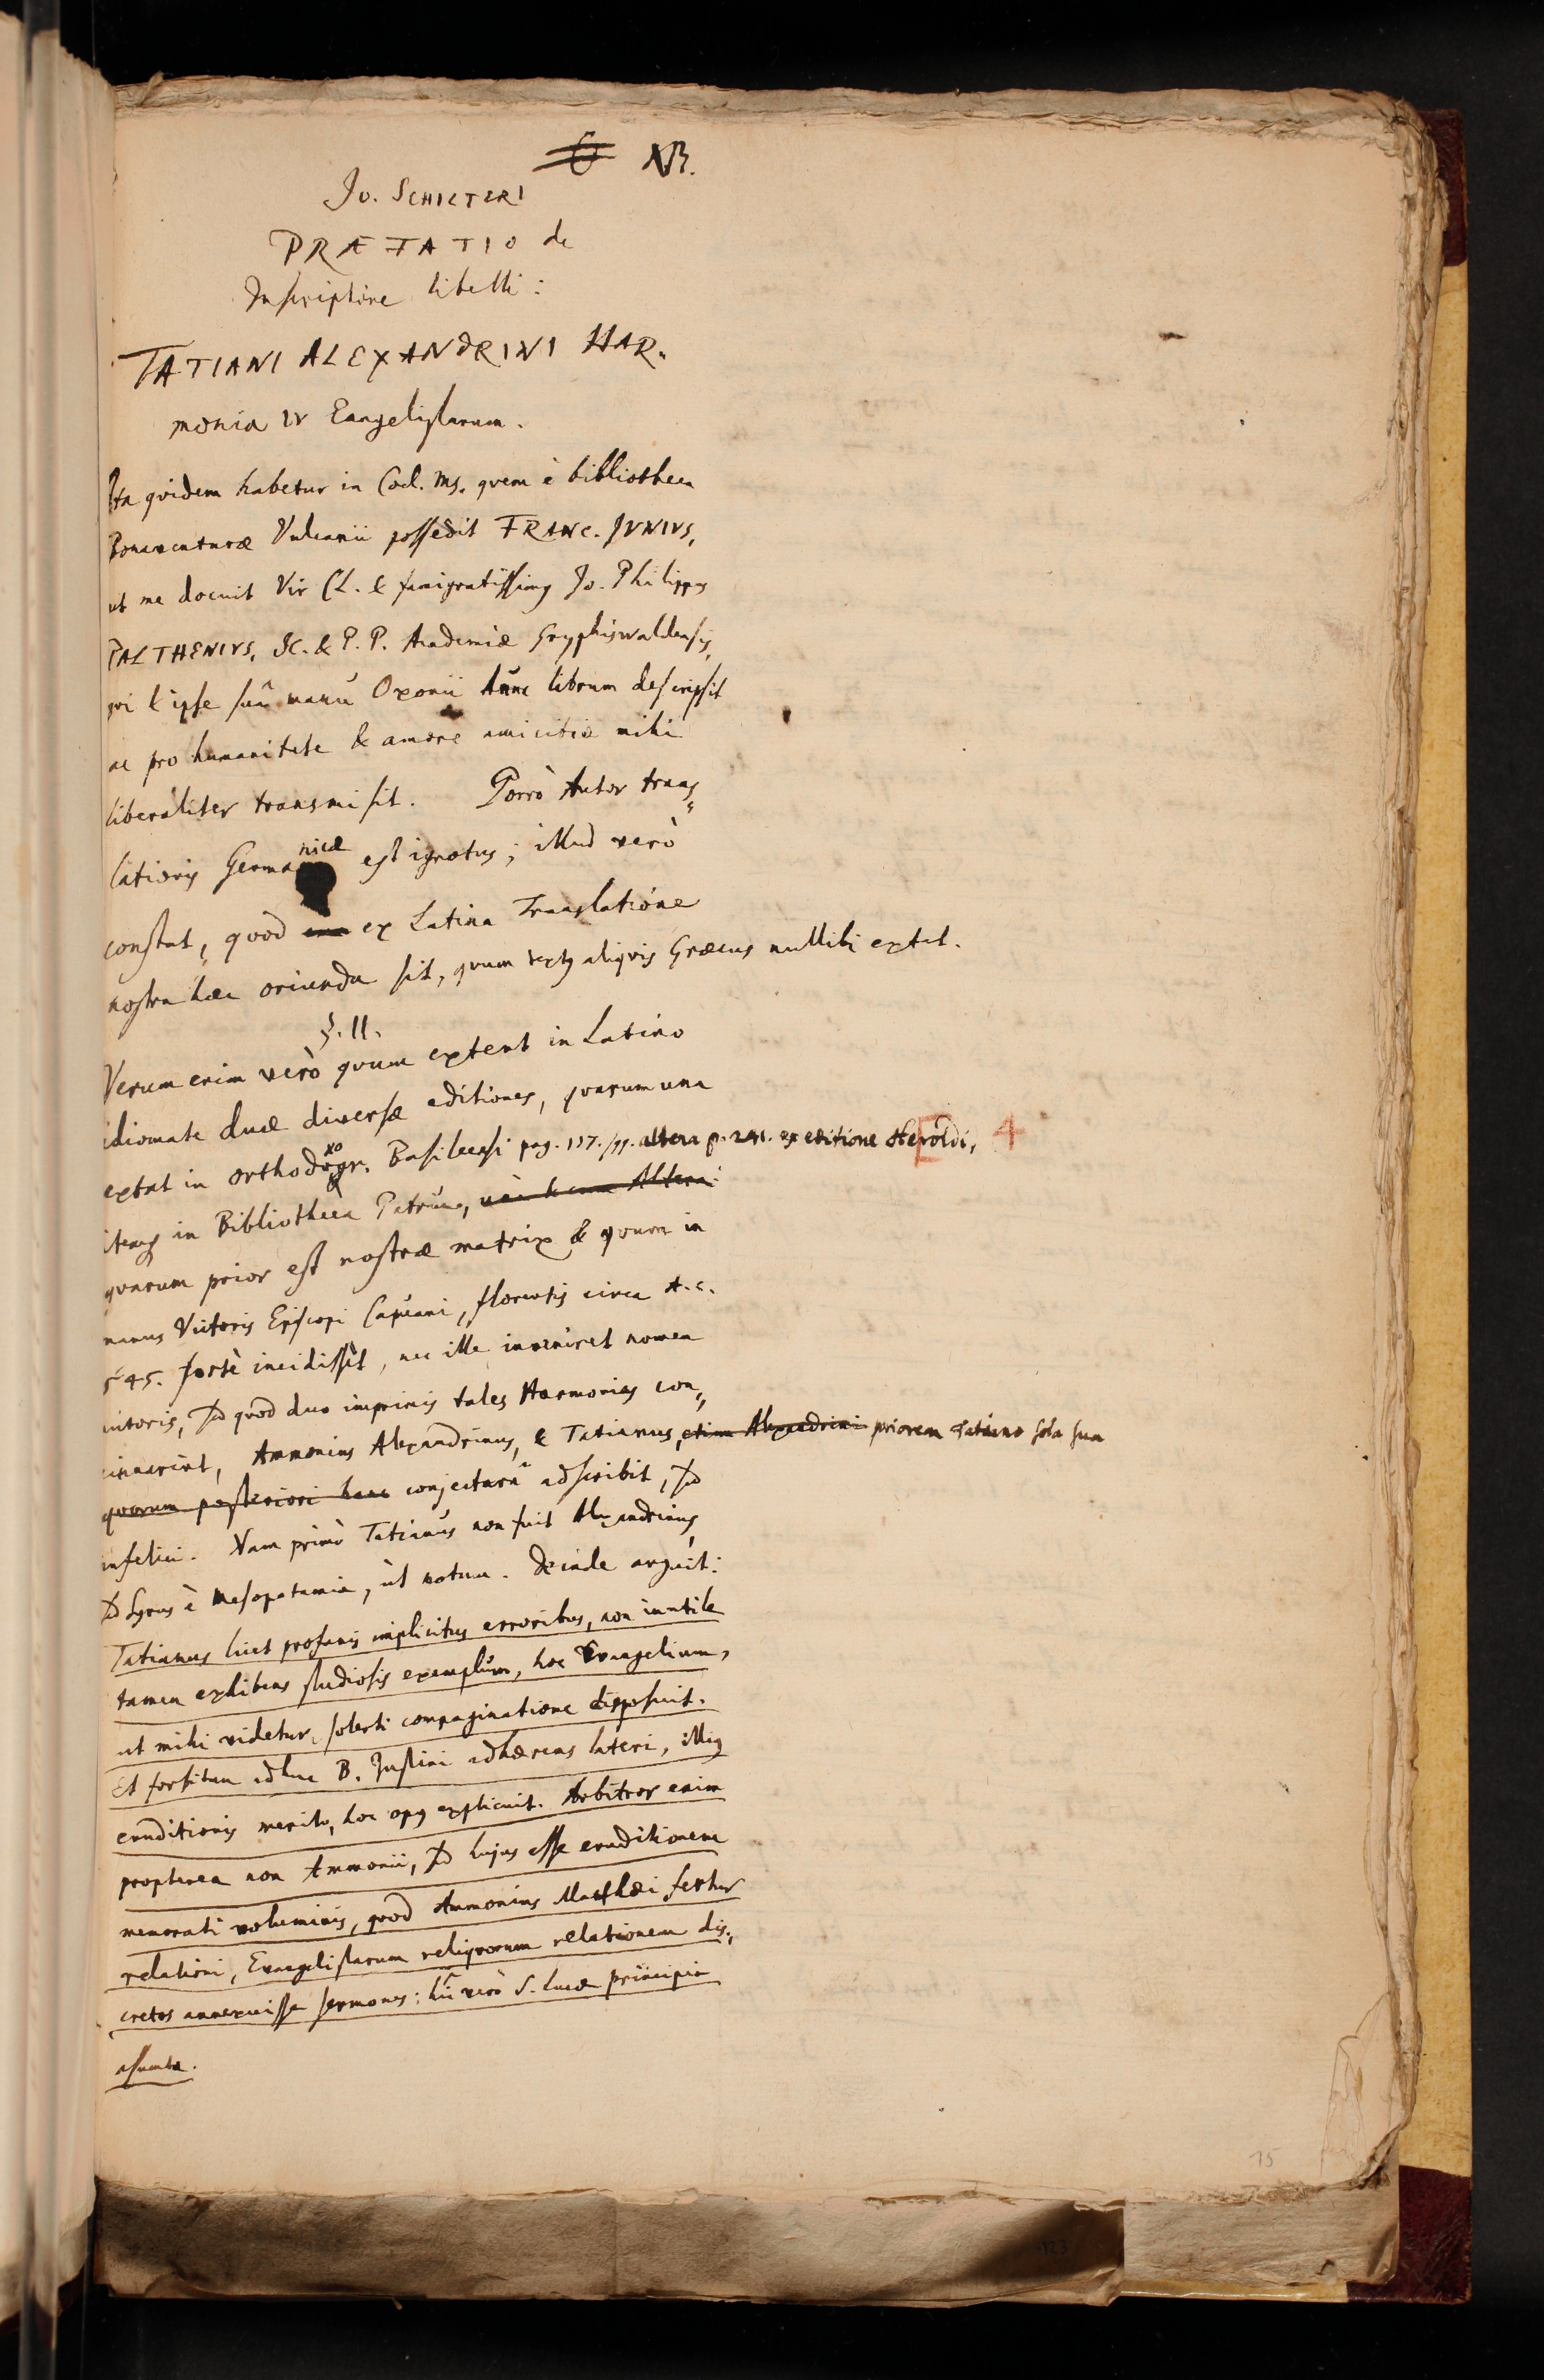 NB.
Jo. SCHILTERI
PRÆFATIO de
Inscriptione libelli:
TATIANI ALEXANDRINI HAR„
monia IV Evangelistarum.
Ita qvidem habetur in Cod. Ms. qvem è bibliotheca
Bonaventuræ Vulcanii possedit FRANC. JVNIVS,
ut me docuit Vir Cl. & Jo. Philippus
PALTHENIVS, JC. & P. P. Academiæ Gryphiswaldensis,
qvi & ipse suâ manu Oxonii hunc librum descripsit
ac pro humanitate & amore amicitiæ mihi
liberaliter transmisit. Porrò Autor trans„
lationis Germanicæ est ignotus; illud verò
constat, qvod ex Latina Translatione
nostra hæc oriunda sit, qvum textus aliqvis Græcus nullibi extet.
§. II.
Verum enim verò qvum extent in Latino
idiomate duæ diversæ editiones, qvarum una
extat in orthodoxogr. Basileensi pag. altera p. ex editione Heroldi, 4
itemque in Bibliotheca Patrum, Altera
qvarum prior est nostræ matrix & qvum in
manus Victoris Episcopi Capuani, florentis circa A. C.
545. fortè incidisset, nec ille inveniret nomen
autoris, sed qvod duo imprimis tales Harmonias con„
cinnarint, Ammonius Alexandrinus, & Tatianus, Alexandrini priorem Tatiano sola sua
qvorum posteriori hanc conjecturâ adscribit, sed
infelici. Nam primò Tatianus non fuit Alexandrinus,
sed Syrus è Mesopotamia, ut notum. Deinde arguit:
Tatianus licet profanis implicitus erroribus, non inutile
tamen exhibens studiosis exemplum, hoc Evangelium,
ut mihi videtur, solerti compaginatione disposuit.
Et forsitan adhuc B. Justini adhærens lateri, illius
eruditionis merito, hoc opus explicuit. Arbitror enim
propterea non Ammonii, sed hujus esse eruditionem
memorati voluminis, qvod Ammonius Matthæi fertur
relationi, Evangelistarum reliqvorum relationem dis„
cretos annexuisse sermones: hîc verò S. Lucæ principia
assumta.
75
123